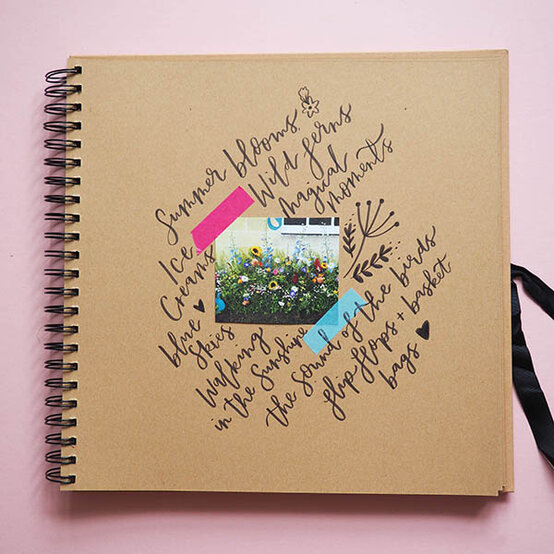 Summer blooms
Wild ferns
magical
moments
Ice
Creams
blue
skies
Walking
in the sunshine
the sound of the birds
flip flops + basket
bags